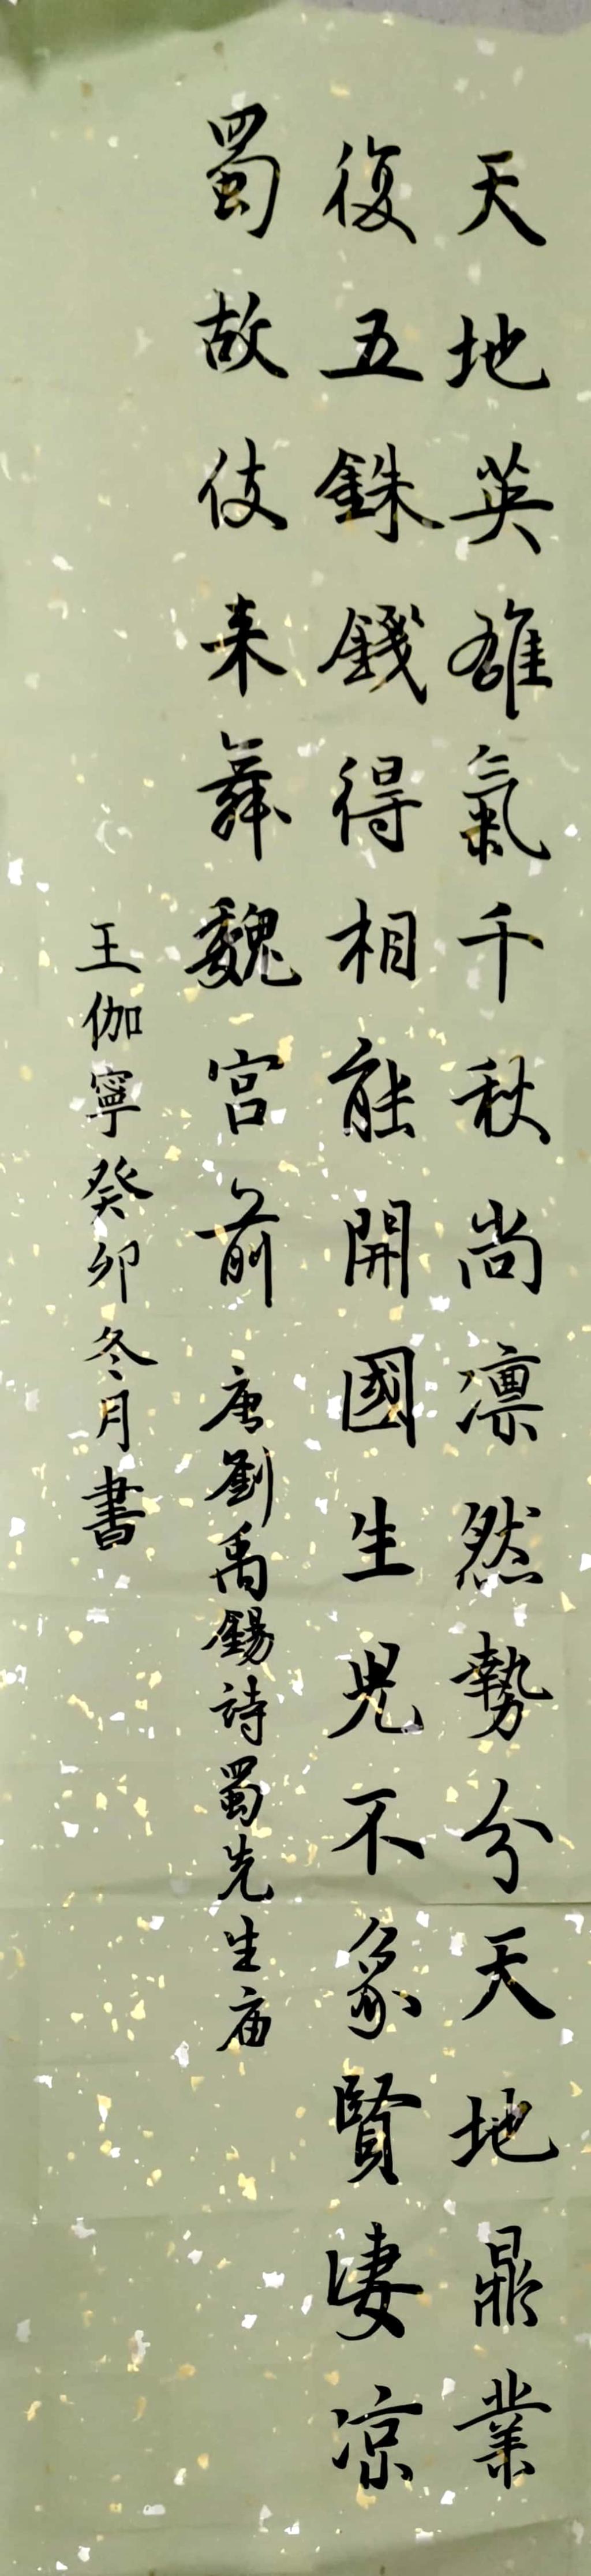 天地英雄氣千秋尚凛然勢分天地鼎業
復五銖錢得相能開國生兒不象賢淒凉
蜀故伎来舞魏宮前 唐劉禹錫詩蜀先生庙
王伽寧癸卯冬月書